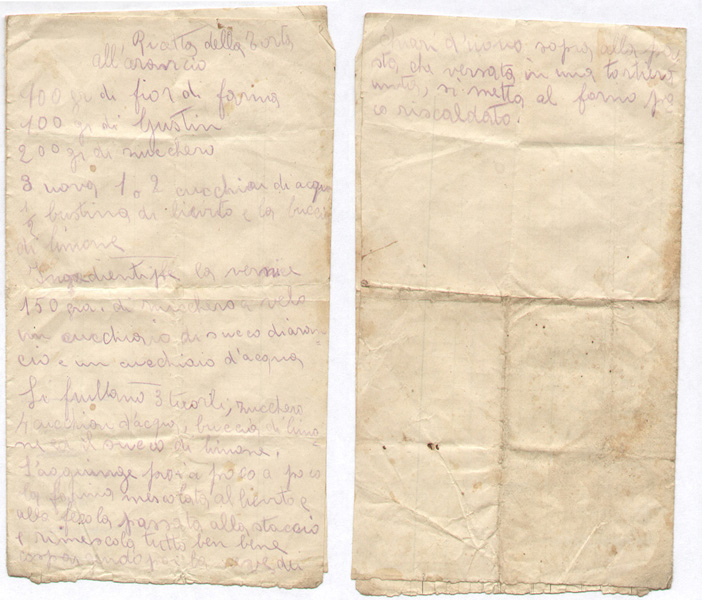 Ricetta della Torta
all'arancio
100 gr di fior di farina
100 gr di Gustin
200 gr di zucchero
3 uova 1 o 2 cucchiai di acqua
1/2 bustina di lievito e la bucc
di limone
Ingredienti per la vernice
150 gr. di zucchero a velo
un cucchiaio di succo di aran-
cio e un cucchiaio d'acqua
Si frullano 3 tuorli, zucchero
4 cucchiai d'acqua, buccia di limo
ne e il succo di limone.
S'aggiunge poi a poco a poco
la farina mescolata al lievito e
alla fecola passata allo staccio
e si rimescola tutto ben bene
d'uovo sopra alla pa
sta che versata in una tortiera
unta, si metta al forno po
co riscaldato.